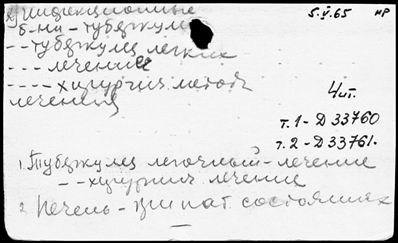 Инфекционные
5.V.65 НР
б-ни - туберкулез
--туберкулез легких
---лечение
----хирургич. метод
лечения
4 чт.
т.1-Д33760
т.2-Д33761.
1. Туберкулез легочный-лечение
--хирургич лечение
2. Печень - при пат. состояниях